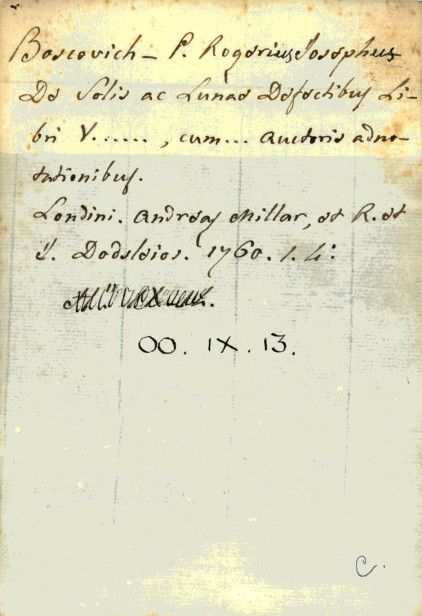 Boscovich – P. Rogerius Josephus
De Solis ac Lunae Defectibus Li-
bri V....... , cum... auctoris adno-
tationibus.
Londini. Andreas Millar, et R. et
J. Dodsleios. 1760. 1. 4:
OO. IX. 13.
C.